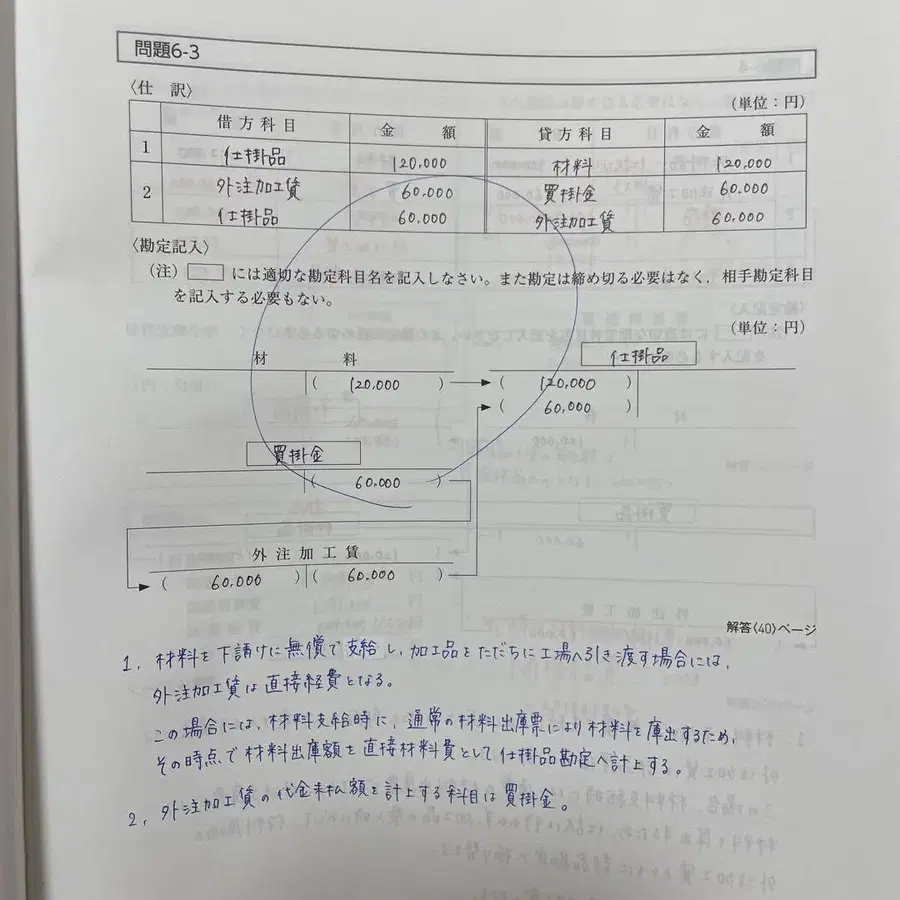 問題6-3
〈仕 訳〉
(単位：円)
借方科目 金額 貸方科目 金額
1 仕掛品 120,000 材料 120,000
2 外注加工賃 60,000 買掛金 60,000
仕掛品 60,000 外注加工賃 60,000
〈勘定記入〉
(注) には適切な勘定科目名を記入しなさい。また勘定は締め切る必要はなく，相手勘定科目
を記入する必要もない。
(単位：円)
材料 仕掛品
( 120,000 ) ( 120,000 )
( 60,000 )
買掛金
( 60,000 )
外注加工賃
( 60,000 ) ( 60,000 )
解答〈40〉ページ
1, 材料を下請けに無償で支給し，加工品をただちに工場へ引き渡す場合には，
外注加工賃は直接経費となる。
この場合には，材料支給時に，通常の材料出庫票により材料を庫出するため，
その時点で材料出庫額を直接材料費として仕掛品勘定へ計上する。
2, 外注加工賃の代金未払額を計上する科目は買掛金。